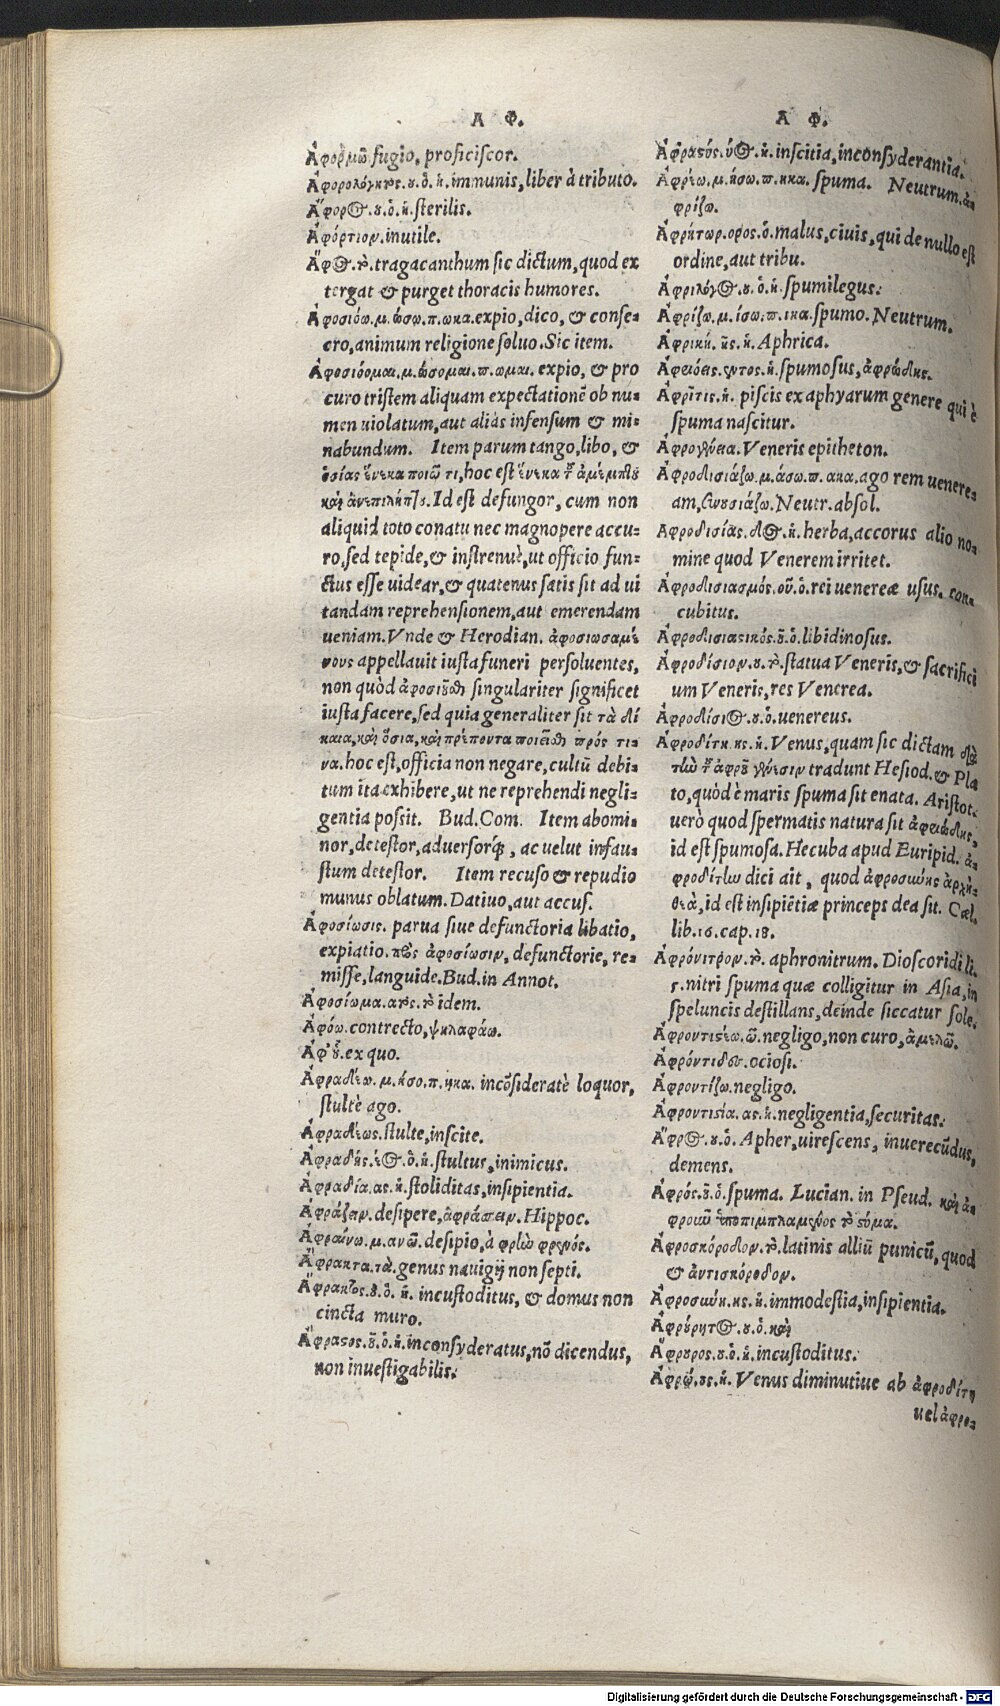 Α Φ.
Ἀφορμῶ fugio, proficiſcor.
Ἀφορολόγητος.ου.ὁ.ἡ.immunis,liber à tributo.
Ἄφορος.ου.ὁ.ἡ.ſterilis.
Ἀφόρτιον.inutile.
Ἄφος.τὸ.tragacanthum ſic dictum,quod ex
tergat & purget thoracis humores.
Ἀφοσιόω.μ.ώσω.π.ωκα.expio,dico, & conſe-
cro,animum religione ſoluo.Sic item.
Ἀφοσιόομαι.μ.ώσομαι.π.ωμαι. expio, & pro
curo triſtem aliquam expectationẽ ob nu-
men uiolatum,aut aliàs infenſum & mi-
nabundum. Item parum tango,libo, &
ὁσίας ἕνεκα ποιῶ τι,hoc eſt ἕνεκα τοῦ ἀμέμπτου
καὶ ἀνεπιλήπτου.Id eſt defungor, cum non
aliquid toto conatu nec magnopere accu-
ro,ſed tepide,& inſtrenuè,ut officio fun-
ctus eſſe uidear,& quatenus ſatis ſit ad ui
tandam reprehenſionem,aut emerendam
ueniam.Vnde & Herodian. ἀφοσιωσαμέ
νους appellauit iuſta funeri perſoluentes,
non quòd ἀφοσιοῦσθαι ſingulariter ſignificet
iuſta facere,ſed quia generaliter ſit τὰ δί
καια,καὶ ὅσια,καὶ πρέποντα ποιεῖσθαι πρός τι-
να.hoc eſt,officia non negare,cultũ debi-
tum ita exhibere,ut ne reprehendi negli-
gentia poſsit. Bud.Com. Item abomi-
nor,deteſtor,aduerſorq́, ac uelut infau-
ſtum deteſtor. Item recuſo & repudio
munus oblatum.Datiuo,aut accuſ.
Ἀφοσίωσις. parua ſiue defunctoria libatio,
expiatio.πρὸς ἀφοσίωσιν,defunctorie, re-
miſſe,languide.Bud.in Annot.
Ἀφοσίωμα.ατος.τὸ idem.
Ἀφόω.contrecto,ψηλαφάω.
Ἀφ' οὗ.ex quo.
Ἀφραδέω.μ.ήσο.π.ηκα. incõſideratè loquor,
ſtultè ago.
Ἀφραδέως.ſtulte,inſcite.
Ἀφραδής.έος.ὁ.ἡ.ſtultus,inimicus.
Ἀφραδία.ας.ἡ.ſtoliditas,inſipientia.
Ἀφράζειν.deſipere,ἀφράσειν.Hippoc.
Ἀφραίνω.μ.ανῶ.deſipio,à φρὴν φρενός.
Ἄφρακτα.τὰ.genus nauigij non ſepti.
Ἄφρακτος.ου.ὁ.ἡ. incuſtoditus, & domus non
cincta muro.
Ἄφραστος.ου.ὁ.ἡ.inconſyderatus,nõ dicendus,
non inueſtigabilis.
Α Φ.
Ἀφραστύς.ύος.ἡ.inſcitia,inconſyderantia.
Ἀφρέω.μ.ήσω.π.ηκα. ſpuma. Neutrum.ἀ-
φρίζω.
Ἀφρήτωρ.ορος.ὁ.malus,ciuis,qui de nullo eſt
ordine,aut tribu.
Ἀφριλόγος.ου.ὁ.ἡ.ſpumilegus.
Ἀφρίζω.μ.ίσω.π.ικα.ſpumo.Neutrum.
Ἀφρική.ῆς.ἡ.Aphrica.
Ἀφριόεις.εντος.ἡ.ſpumoſus,ἀφρώδης.
Ἀφρῖτις.ἡ. piſcis ex aphyarum genere qui è
ſpuma naſcitur.
Ἀφρογένεια.Veneris epitheton.
Ἀφροδισιάζω.μ.άσω.π.ακα.ago rem uenere-
am,συνουσιάζω.Neutr.abſol.
Ἀφροδισίας.δος.ἡ.herba,accorus alio no-
mine quod Venerem irritet.
Ἀφροδισιασμός.οῦ.ὁ.rei uenereæ uſus, con-
cubitus.
Ἀφροδισιαστικός.οῦ.ὁ.libidinoſus.
Ἀφροδίσιον.ου.τὸ.ſtatua Veneris,& ſacrifici
um Veneris,res Venerea.
Ἀφροδίσιος.ου.ὁ.uenereus.
Ἀφροδίτη.ης.ἡ.Venus,quam ſic dictam διὰ
τὴν τοῦ ἀφροῦ γένεσιν tradunt Heſiod.& Pla
to,quòd è maris ſpuma ſit enata. Ariſtot.
uerò quod ſpermatis natura ſit ἀφρώδης,
id eſt ſpumoſa.Hecuba apud Euripid. ἀ-
φροδίτην dici ait, quod ἀφροσύνης ἀρχὴ-
θεὰ,id eſt inſipiẽtiæ princeps dea ſit. Cæl.
lib.16.cap.18.
Ἀφρόνιτρον.τὸ. aphronitrum. Dioſcoridi li.
5.nitri ſpuma quæ colligitur in Aſia,in
ſpeluncis deſtillans,deinde ſiccatur ſole.
Ἀφροντιστέω.ῶ.negligo,non curo,ἀμελῶ.
Ἀφρόντιδες.ocioſi.
Ἀφροντίζω.negligo.
Ἀφροντιστία.ας.ἡ.negligentia,ſecuritas.
Ἄφρος.ου.ὁ. Apher,uireſcens, inuerecũdus,
demens.
Ἀφρός.οῦ.ὁ.ſpuma. Lucian. in Pſeud. καὶ ἀ-
φροῦ ὑποπιμπλαμένος τὸ στόμα.
Ἀφροσκόροδον.τὸ.latinis alliũ punicũ,quod
& ἀντισκόροδον.
Ἀφροσύνη.ης.ἡ.immodeſtia,inſipientia.
Ἀφρούρητος.ου.ὁ.καὶ
Ἄφρουρος.ου.ὁ.ἡ.incuſtoditus.
Ἀφρώ.ους.ἡ.Venus diminutiue ab ἀφροδίτη
uel ἀφρο-
Digitalisierung gefördert durch die Deutsche Forschungsgemeinschaft - DFG